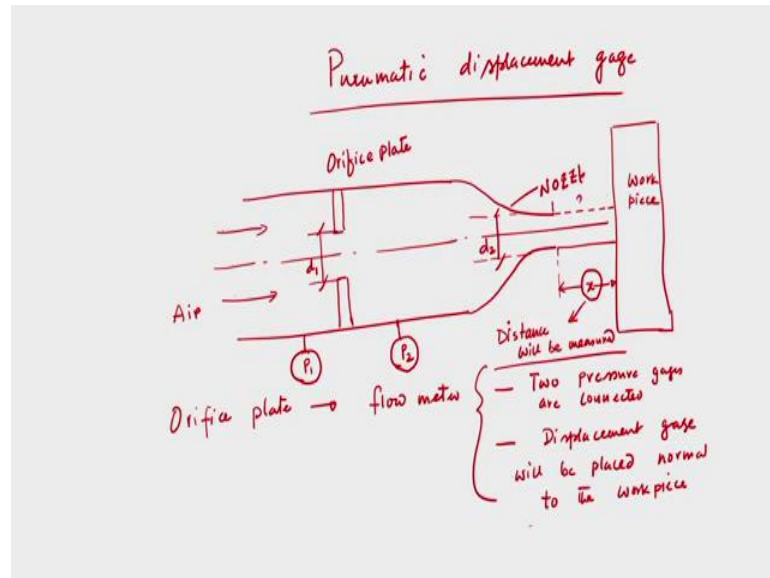 Pneumatic displacement gage
Orifice plate
Nozzle
Work
piece
d1
d2
Air
x
P1
P2
Distance
will be measured
Orifice plate → flow meter
– Two pressure gages
are connected
– Displacement gage
will be placed normal
to the workpiece